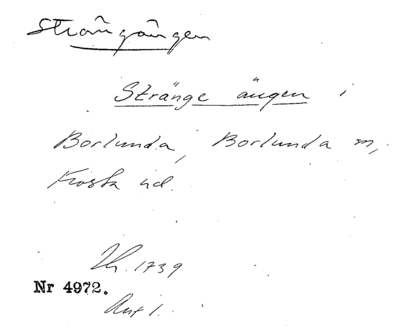 Strängängen
Stränge ängen i
Borlunda, Borlunda sn,
Frosta hd.
Lh. 1739
Nr 4972.
Akt 1.